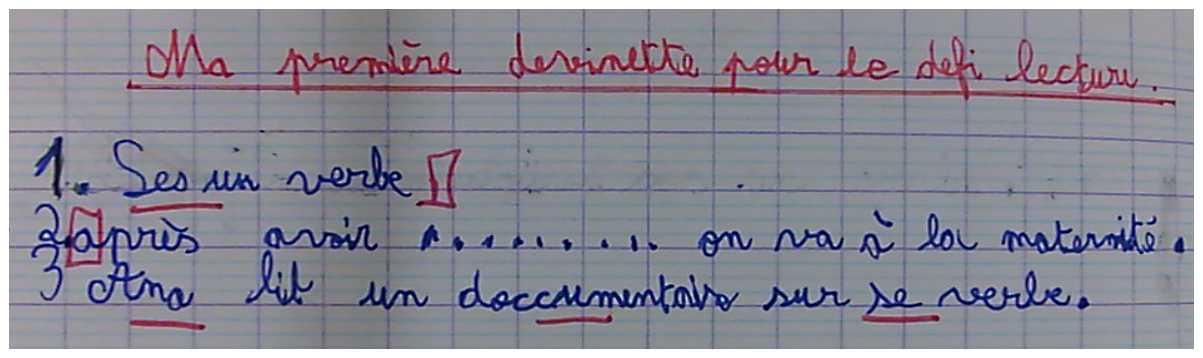 Ma première devinette pour le défi lecture.
1. Ses un verbe
2. après avoir ......... on va à la maternité.
3 Ana lit un doccumentaire sur se verbe.